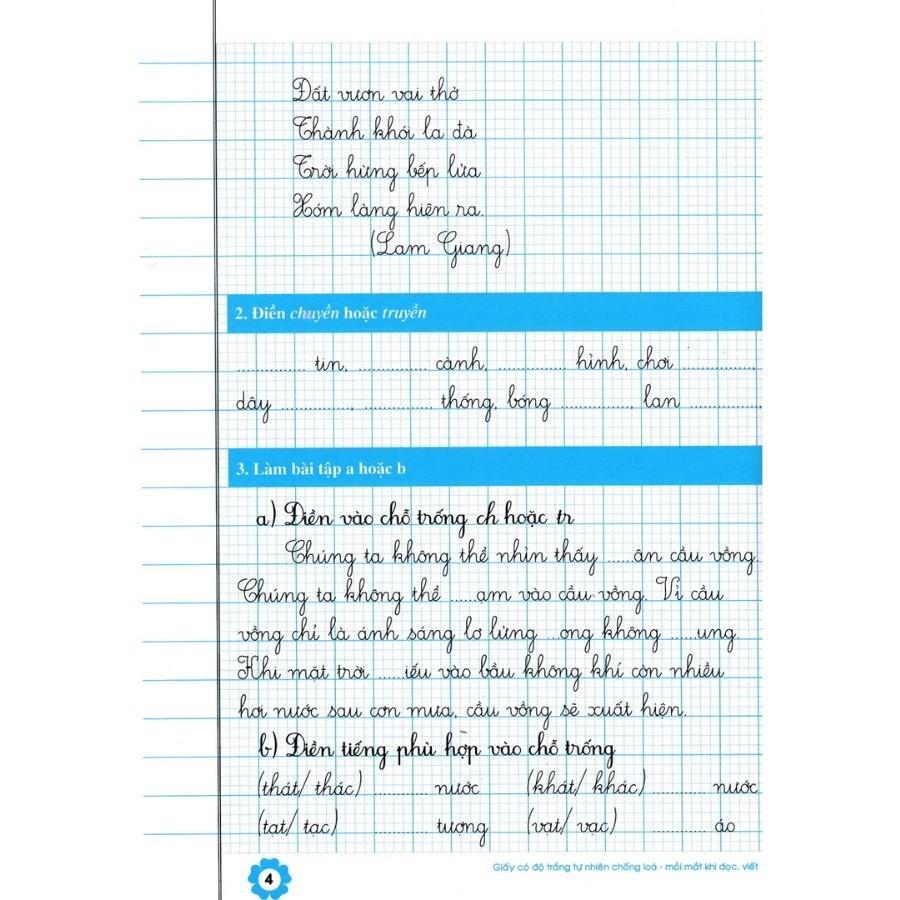 Đất vươn vai thở
Thành khói la đà
Trời hừng bếp lửa
Xóm làng hiện ra.
(Lam Giang)
2. Điền chuyền hoặc truyền
.............. tin, .............. cành, .............. hình, chơi ..............,
dây .............., .............. thống, bóng .............., lan ..............
3. Làm bài tập a hoặc b
a) Điền vào chỗ trống ch hoặc tr
Chúng ta không thể nhìn thấy ......ân cầu vồng.
Chúng ta không thể ......ạm vào cầu vồng. Vì cầu
vồng chỉ là ánh sáng lơ lửng ...ong không ......ung.
Khi mặt trời ......iếu vào bầu không khí còn nhiều
hơi nước sau cơn mưa, cầu vồng sẽ xuất hiện.
b) Điền tiếng phù hợp vào chỗ trống
(thát/ thác) ........... nước (khát/ khác) ........... nước
(tạt/ tạc) ........... tượng (vạt/ vạc) ........... áo
4
Giấy có độ trắng tự nhiên chống loá - mỏi mắt khi đọc, viết